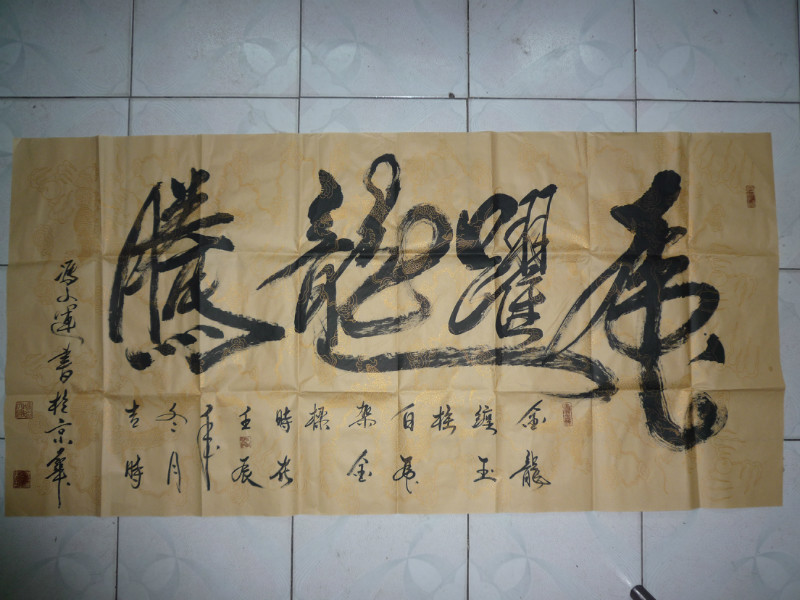 虎躍龍騰
金龍
纏玉
柱
白虎
架金
樑
時在
壬辰
年
冬月
吉時
馮小運書於京華